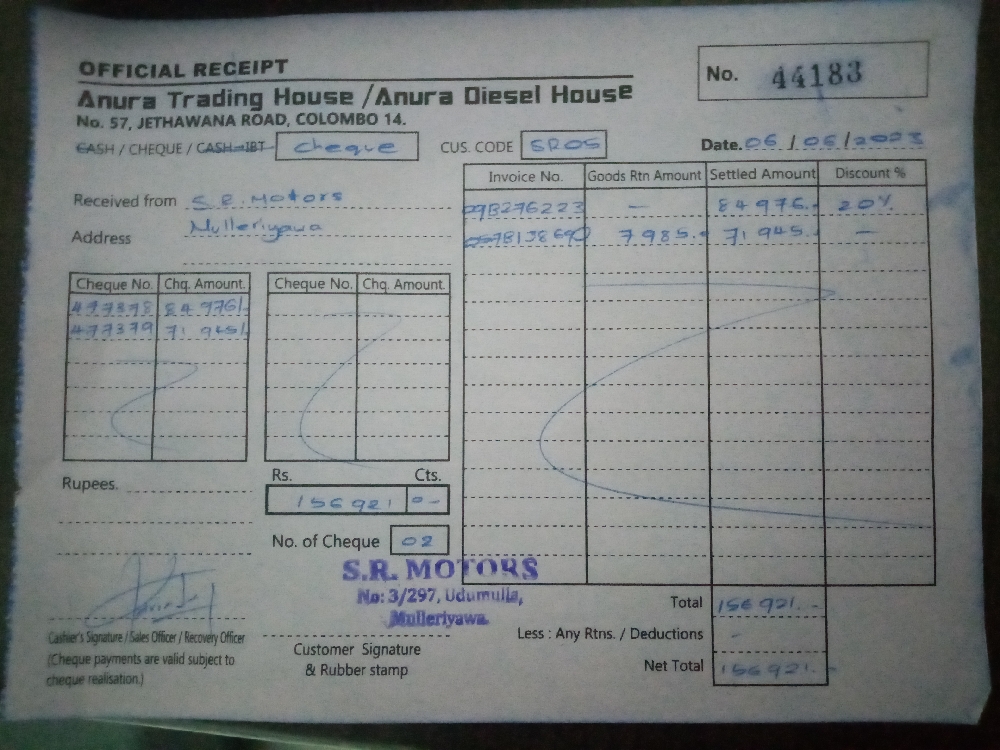 OFFICIAL RECEIPT
No. 44183
Anura Trading House / Anura Diesel House
No. 57, JETHAWANA ROAD, COLOMBO 14.
CASH / CHEQUE / CASH-IBT cheque CUS. CODE SR05 Date. 06 / 06 / 2023
Invoice No. Goods Rtn Amount Settled Amount Discount %
Received from S.R. Motors
098276223 — 84 976.- 20%
Address Mulleriyawa
7 985.- 71 945.- —
Cheque No. Chq. Amount. Cheque No. Chq. Amount.
477378 84 976/-
477379 71 945/-
Rupees. Rs. Cts.
156 921 0-
No. of Cheque 02
S.R. MOTORS
No: 3/297, Udumulla,
Mulleriyawa.
Total 156 921.-
Less : Any Rtns. / Deductions -
Net Total 156 921.-
Cashier's Signature / Sales Officer / Recovery Officer
(Cheque payments are valid subject to
cheque realisation.)
Customer Signature
& Rubber stamp